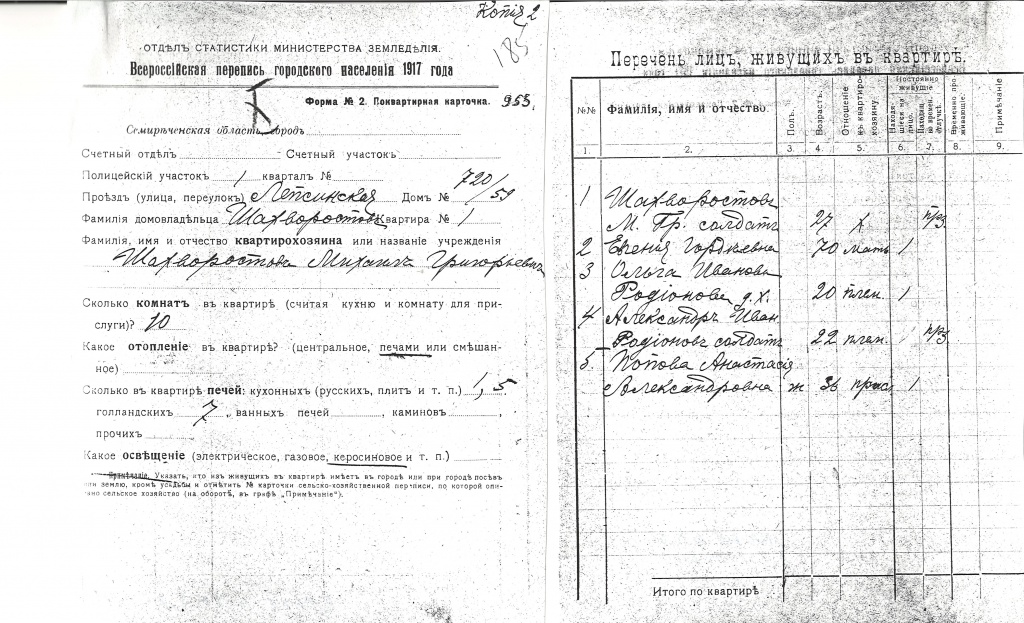 Копія 2
185
ОТДѢЛЪ СТАТИСТИКИ МИНИСТЕРСТВА ЗЕМЛЕДѢЛІЯ.
Всероссійская перепись городского населенія 1917 года
Форма № 2. Поквартирная карточка. 953.
Семирѣченская область, городъ
Счетный отдѣлъ Счетный участокъ
Полицейскій участокъ 1 кварталъ № 720/59
Проѣздъ (улица, переулокъ) Лепсинская Домъ №
Фамилія домовладѣльца Шахворостовъ Квартира № 1
Фамилія, имя и отчество квартирохозяина или названіе учрежденія
Шахворостова Михаилъ Григорьевичъ
Сколько комнатъ въ квартирѣ (считая кухню и комнату для при-
слуги)? 10
Какое отопленіе въ квартирѣ? (центральное, печами или смѣшан-
ное)
Сколько въ квартирѣ печей: кухонныхъ (русскихъ, плитъ и т. п.) 1,5
голландскихъ 7, ванныхъ печей, каминовъ,
прочихъ
Какое освѣщеніе (электрическое, газовое, керосиновое и т. п.)
Примѣчаніе. Указать, кто изъ живущихъ въ квартирѣ имѣетъ въ городѣ или при городѣ посѣвъ
или землю, кромѣ усадьбы и отмѣтить № карточки сельско-хозяйственной переписи, по которой опи-
сано сельское хозяйство (на оборотѣ, въ графѣ „Примѣчаніе“).
Перечень лицъ, живущихъ въ квартирѣ.
№№ Фамилія, имя и отчество. Полъ. Возрастъ. Отношеніе къ квартирохозяину. Постоянно живущіе Находящіеся на лицо. Находящ. во времен. отлучкѣ. Временно проживающіе. Примѣчаніе
1. 2. 3. 4. 5. 6. 7. 8. 9.
1 Шахворостовъ
М. Гр. солдатъ 27 х прз.
2 Евгенія Гордѣевна 70 мать 1
3 Ольга Иванова
Родіонова д.х. 20 плем. 1
4 Александръ Иван
Родіоновъ солдатъ 22 плем. прз
5. Попова Анастасія
Александровна ж 36 прис 1
Итого по квартирѣ